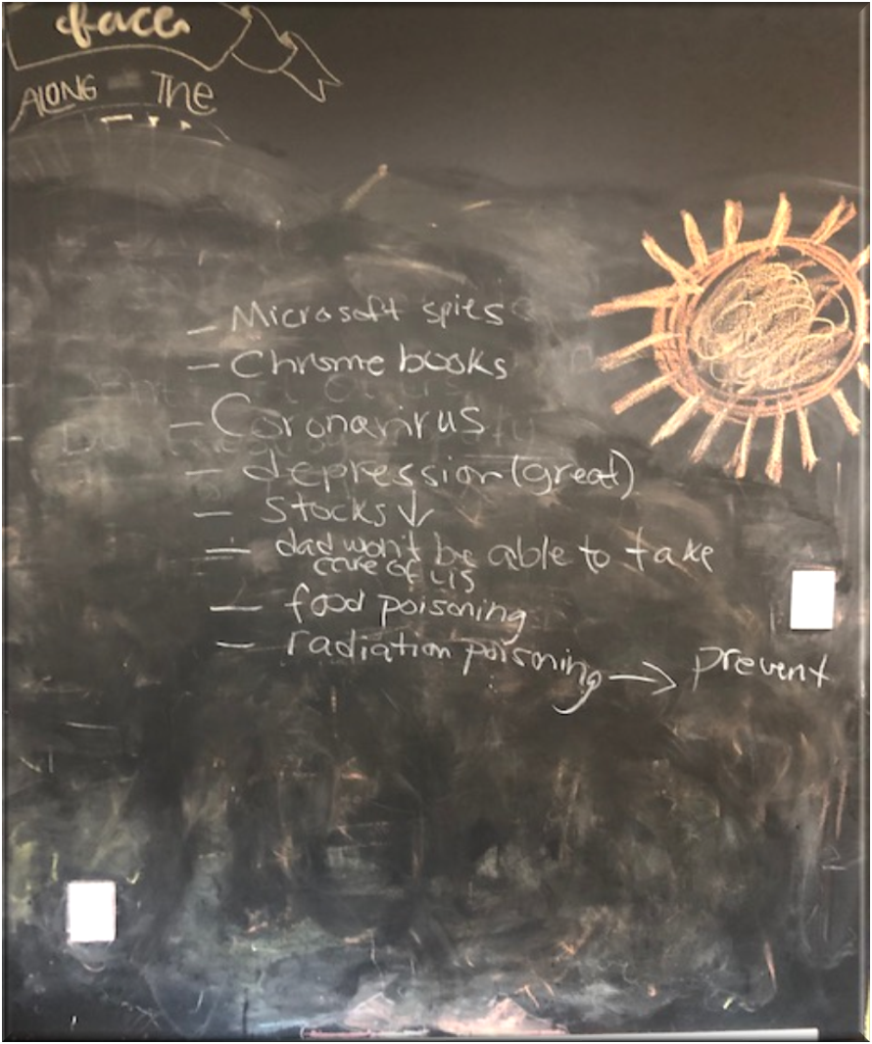 face
ALONG The
- Microsoft spies
- Chrome books
- Coronavirus
- depression (great)
- Stocks ↓
- dad won't be able to take
care of us
- food poisoning
- radiation poisoning → prevent